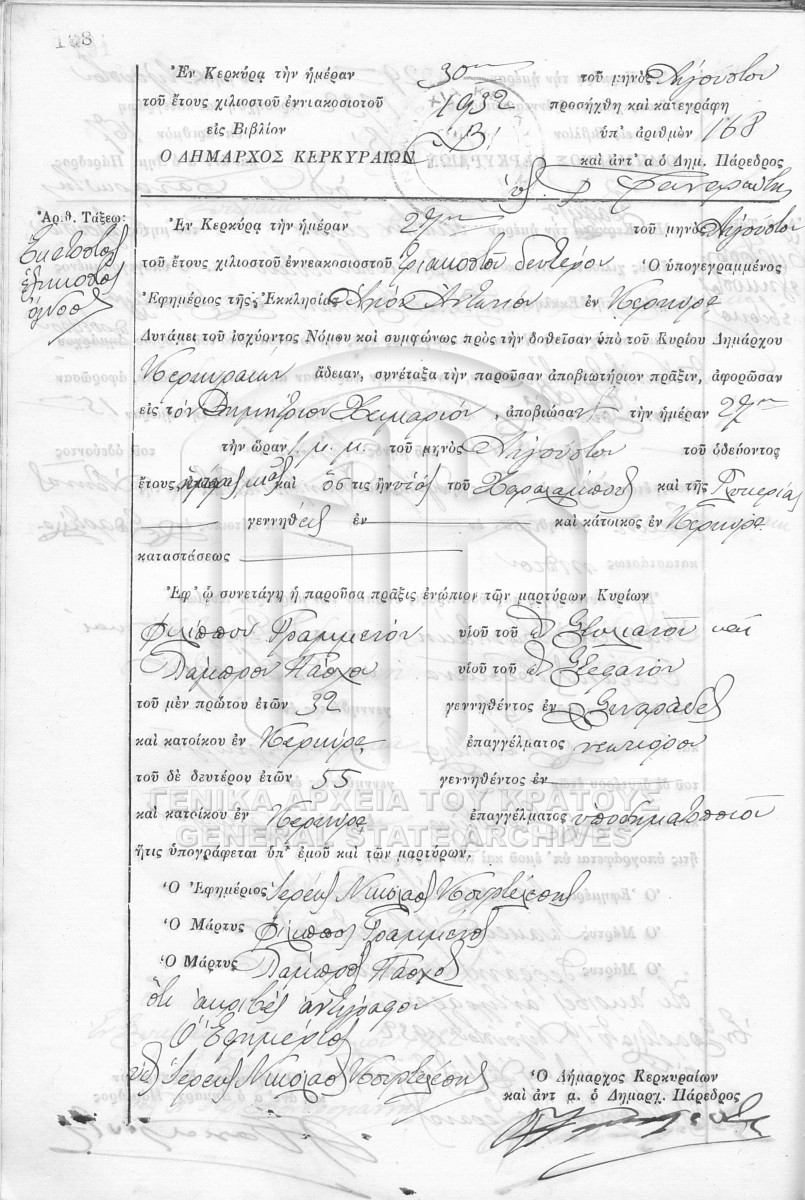 168
Ἐν Κερκύρᾳ τὴν ἡμέραν 30ην τοῦ μηνὸς Αὐγούστου
τοῦ ἔτους χιλιοστοῦ ἐννιακοσιοτοῦ 1932 προσήχθη καὶ κατεγράφη
εἰς Βιβλίον Β' ὑπ' ἀριθμὸν 168
Ο ΔΗΜΑΡΧΟΣ ΚΕΡΚΥΡΑΙΩΝ καὶ ἀντ' α ὁ Δημ. Πάρεδρος
Ἀριθ. Τάξεω:
Ἑκατοστὸς
ἑξηκοστὸς
ὄγδοος
Ἐν Κερκύρᾳ τὴν ἡμέραν 27ην τοῦ μηνὸς Αὐγούστου
τοῦ ἔτους χιλιοστοῦ ἐννεακοσιοστοῦ τριακοστοῦ δευτέρου Ὁ ὑπογεγραμμένος
Ἐφημέριος τῆς Ἐκκλησίας Ἁγίου Ἀντωνίου ἐν Κερκύρᾳ
Δυνάμει τοῦ ἰσχύοντος Νόμου καὶ συμφώνως πρὸς τὴν δοθεῖσαν ὑπὸ τοῦ Κυρίου Δημάρχου
Κερκυραίων ἄδειαν, συνέταξα τὴν παροῦσαν ἀποβιωτήριον πρᾶξιν, ἀφορῶσαν
εἰς τὸν Δημήτριον Χειμαριόν, ἀποβιώσαντ τὴν ἡμέραν 27ην
τὴν ὥραν 1 μ. μ. τοῦ μηνὸς Αὐγούστου τοῦ ὁδεύοντος
ἔτους, καὶ ὅστις ἦν υἱὸς τοῦ Χαραλάμπους καὶ τῆς Γλυκερίας
γεννηθεὶς ἐν καὶ κάτοικος ἐν Κερκύρᾳ
καταστάσεως
Ἐφ' ᾧ συνετάγη ἡ παροῦσα πρᾶξις ἐνώπιον τῶν μαρτύρων Κυρίων
Φιλίππου Γραμμένου υἱοῦ τοῦ Στυλιανοῦ καὶ
Λάμπρου Πάσχου υἱοῦ τοῦ Στεφάνου
τοῦ μὲν πρώτου ἐτῶν 32 γεννηθέντος ἐν Σιναράδες
καὶ κατοίκου ἐν Κερκύρᾳ ἐπαγγέλματος νεωκόρου
τοῦ δὲ δευτέρου ἐτῶν 55 γεννηθέντος ἐν
καὶ κατοίκου ἐν Κερκύρᾳ ἐπαγγέλματος ὑποδηματοποιοῦ
ΓΕΝΙΚΑ ΑΡΧΕΙΑ ΤΟΥ ΚΡΑΤΟΥΣ
GENERAL STATE ARCHIVES
ἥτις ὑπογράφεται ὑπ' ἐμοῦ καὶ τῶν μαρτύρων,
Ὁ Ἐφημέριος Ἱερεὺς Νικόλαος
Ὁ Μάρτυς Φίλιππος Γραμμένος
Ὁ Μάρτυς Λάμπρος Πάσχος
Ὅτι ἀκριβὲς ἀντίγραφον
Ὁ Ἐφημέριος
Ἱερεὺς Νικόλαος
Ὁ Δήμαρχος Κερκυραίων
καὶ ἀντ α. ὁ Δημαρχ. Πάρεδρος